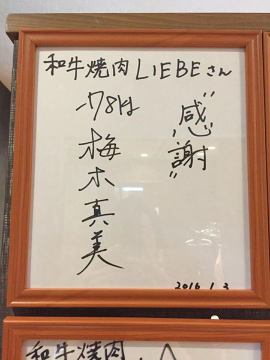 和牛焼肉LIEBEさん
"感謝"
-78kg
梅木真美
2016.1.3
和牛焼肉